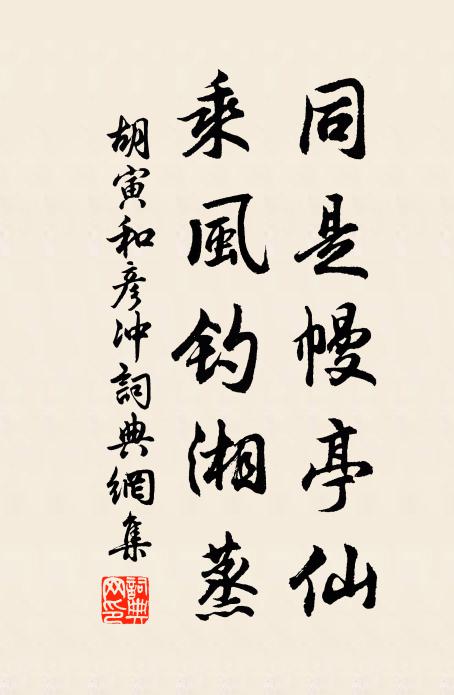 同是幔亭仙
乘風釣湘蒸
胡寅和彥冲詞典網集
詞典網印